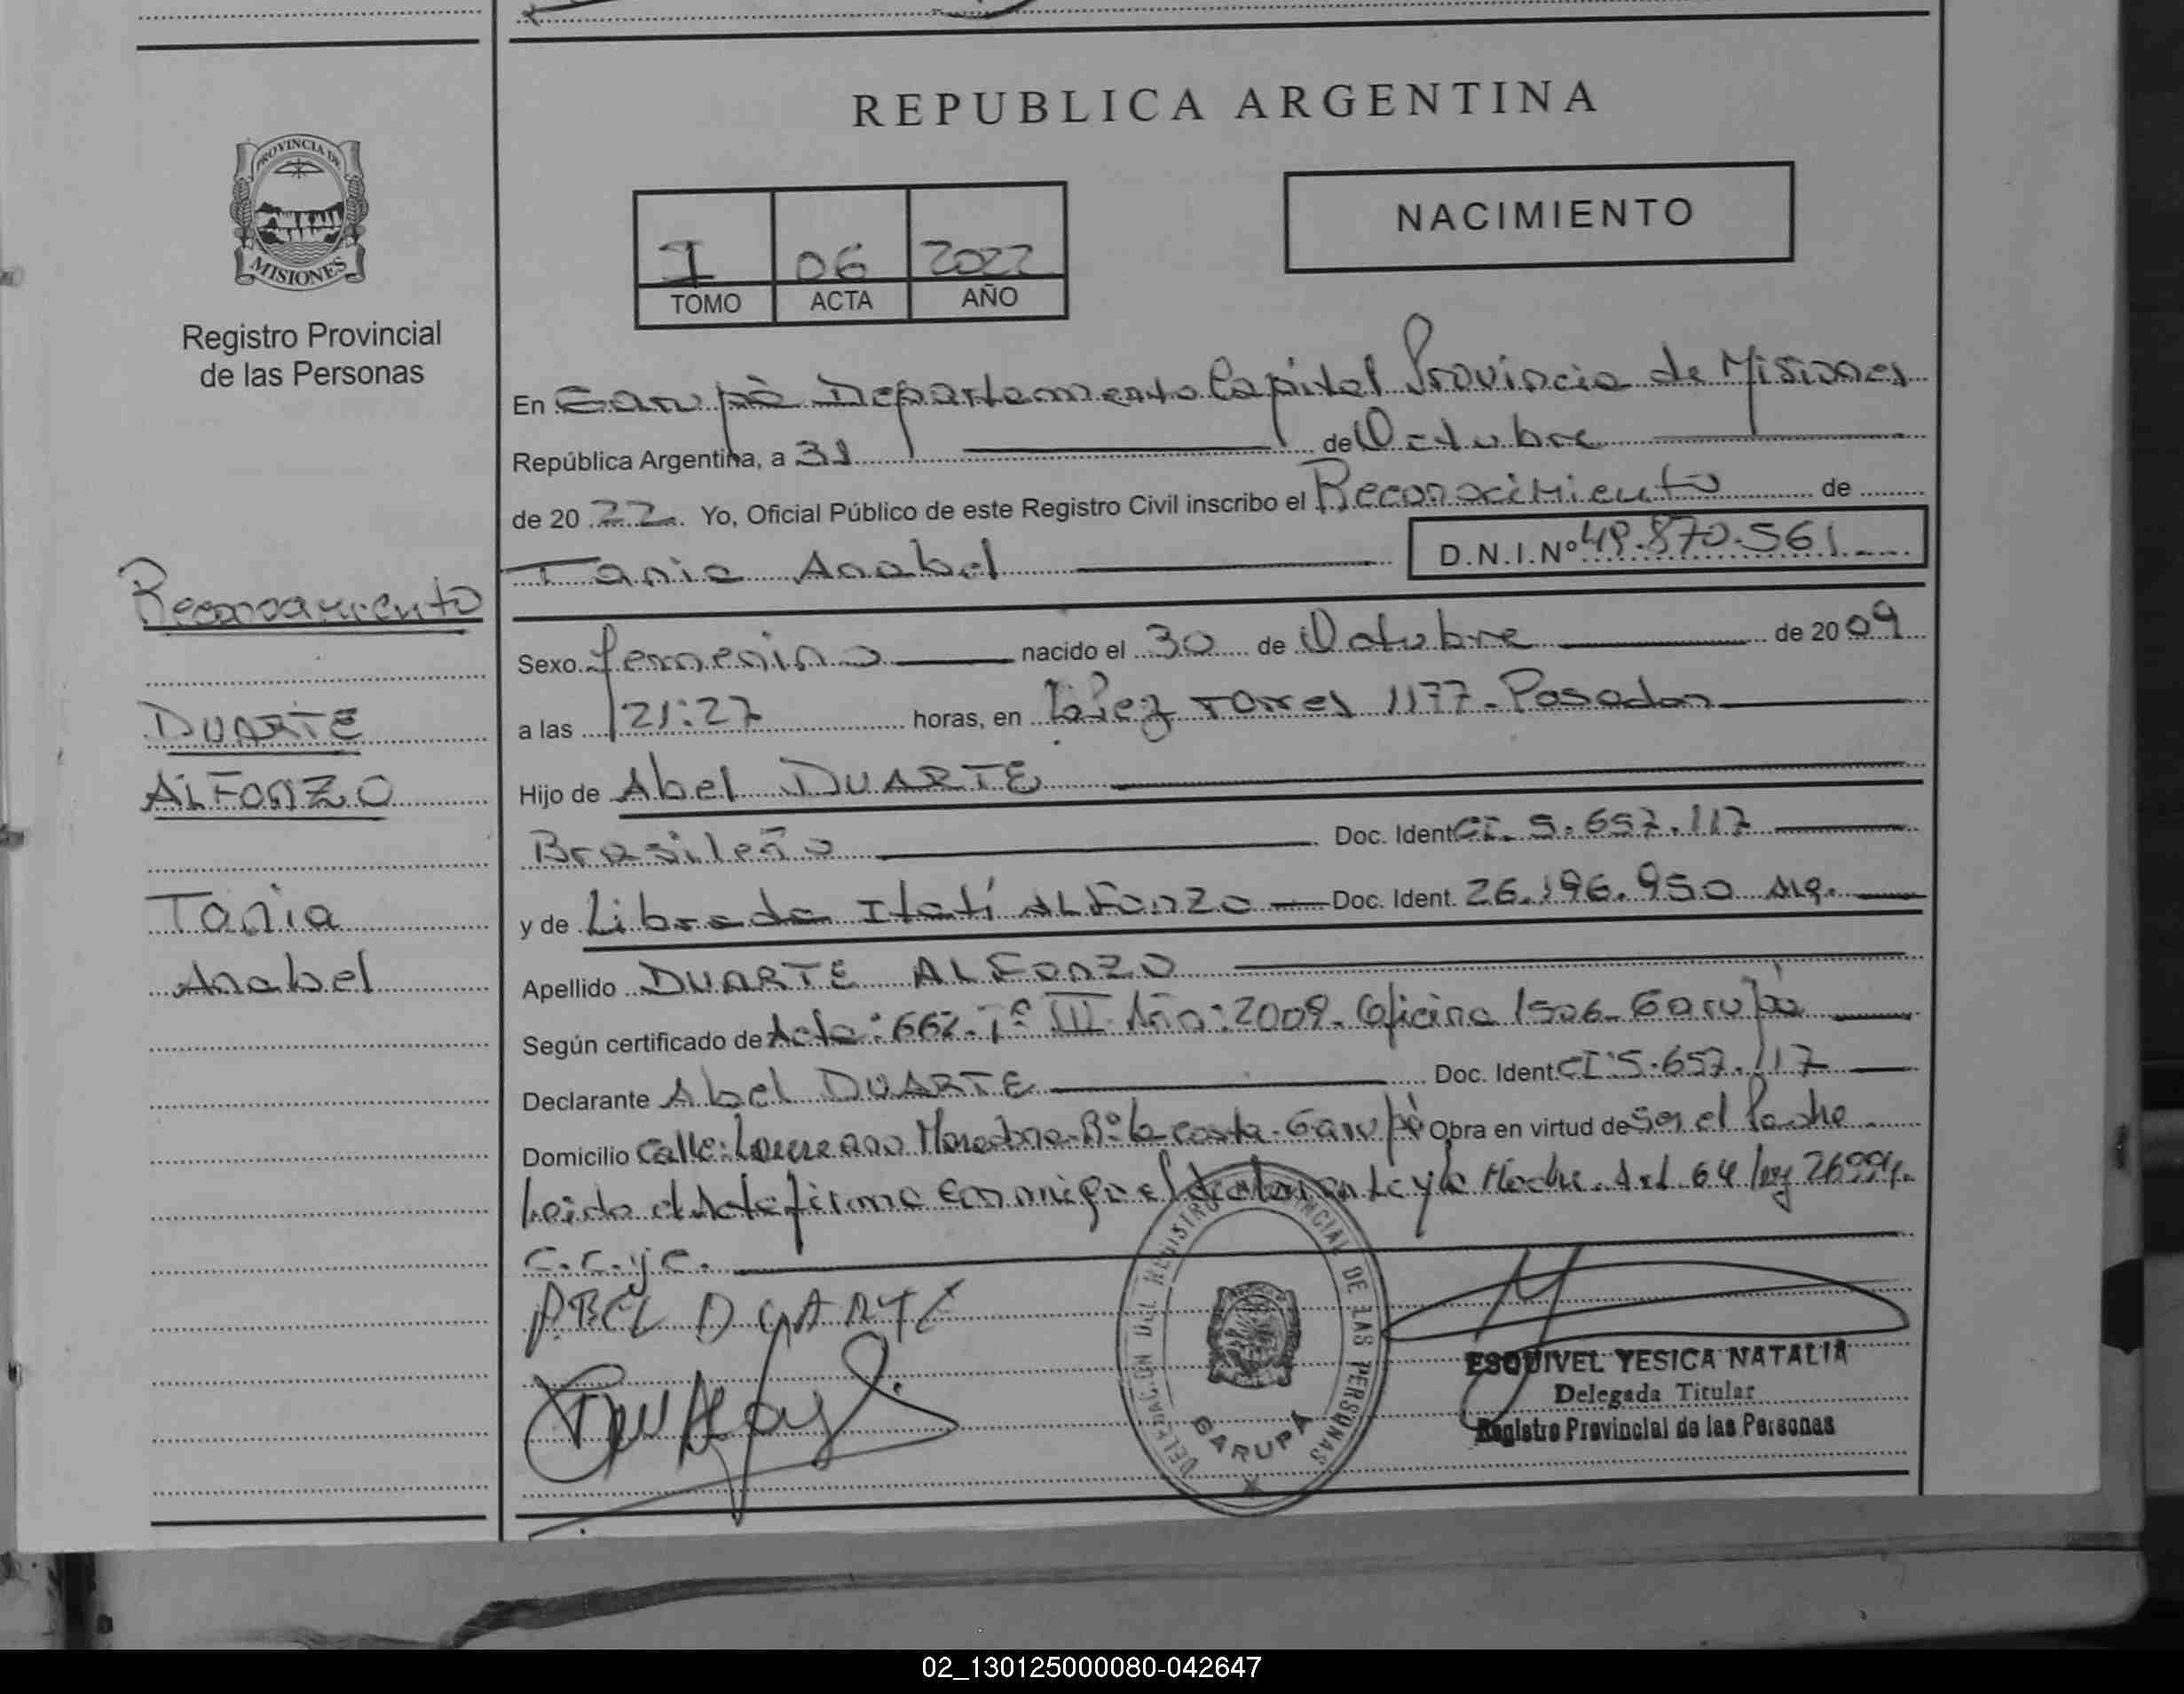 REPUBLICA ARGENTINA
PROVINCIA DE
MISIONES
Registro Provincial
de las Personas
I 06 2022
TOMO ACTA AÑO
NACIMIENTO
En Garupá Departamento Capital Provincia de Misiones
República Argentina, a 31 de Octubre
de 20 22. Yo, Oficial Público de este Registro Civil inscribo el Reconocimiento de
Tania Anabel D.N.I.Nº 49.870.561
Reconocimiento
DUARTE
ALFONZO
Tania
Anabel
Sexo femenino nacido el 30 de Octubre de 20 09
a las 21:27 horas, en López Torres 1177-Posadas
Hijo de Abel DUARTE
Brasileño Doc. Ident CI. 5.657.117
y de Librada Itatí ALFONZO Doc. Ident. 26.196.950 Arg.
Apellido DUARTE ALFONZO
Según certificado de Acta: 662-Tº III-Año: 2009. Oficina 1506-Garupá
Declarante Abel DUARTE Doc. Ident. CI: 5.657.117
Domicilio Calle: Laureano -Bº la costa-Garupá Obra en virtud de Ser el Padre
Leída el Acta firma conmigo el declarante y la Madre. Art. 64 ley 26994.
C.C.y.C.
ABEL DUARTE
DELEGACION DEL REGISTRO PROVINCIAL DE LAS PERSONAS
GARUPA
ESQUIVEL YESICA NATALIA
Delegada Titular
Registro Provincial de las Personas
02_130125000080-042647